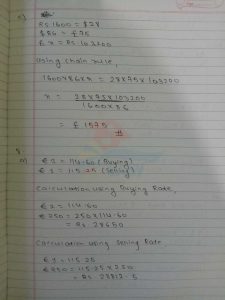 Rs 1600 = $28
$86 = £75
£ x = Rs 103200
Using chain rule,
1600x86xx = 28x75x103200
x = 28x75x103200
1600x86
= £ 1575
8.
€ 1 = 114.60 (Buying)
€ 1 = 115.25 (Selling)
Calculation using Buying Rate,
€ 1 = 114.60
€ 250 = 250x114.60
= Rs 28650
Calculation using Selling Rate
€ 1 = 115.25
€ 250 = 115.25x250
= Rs. 28812.5